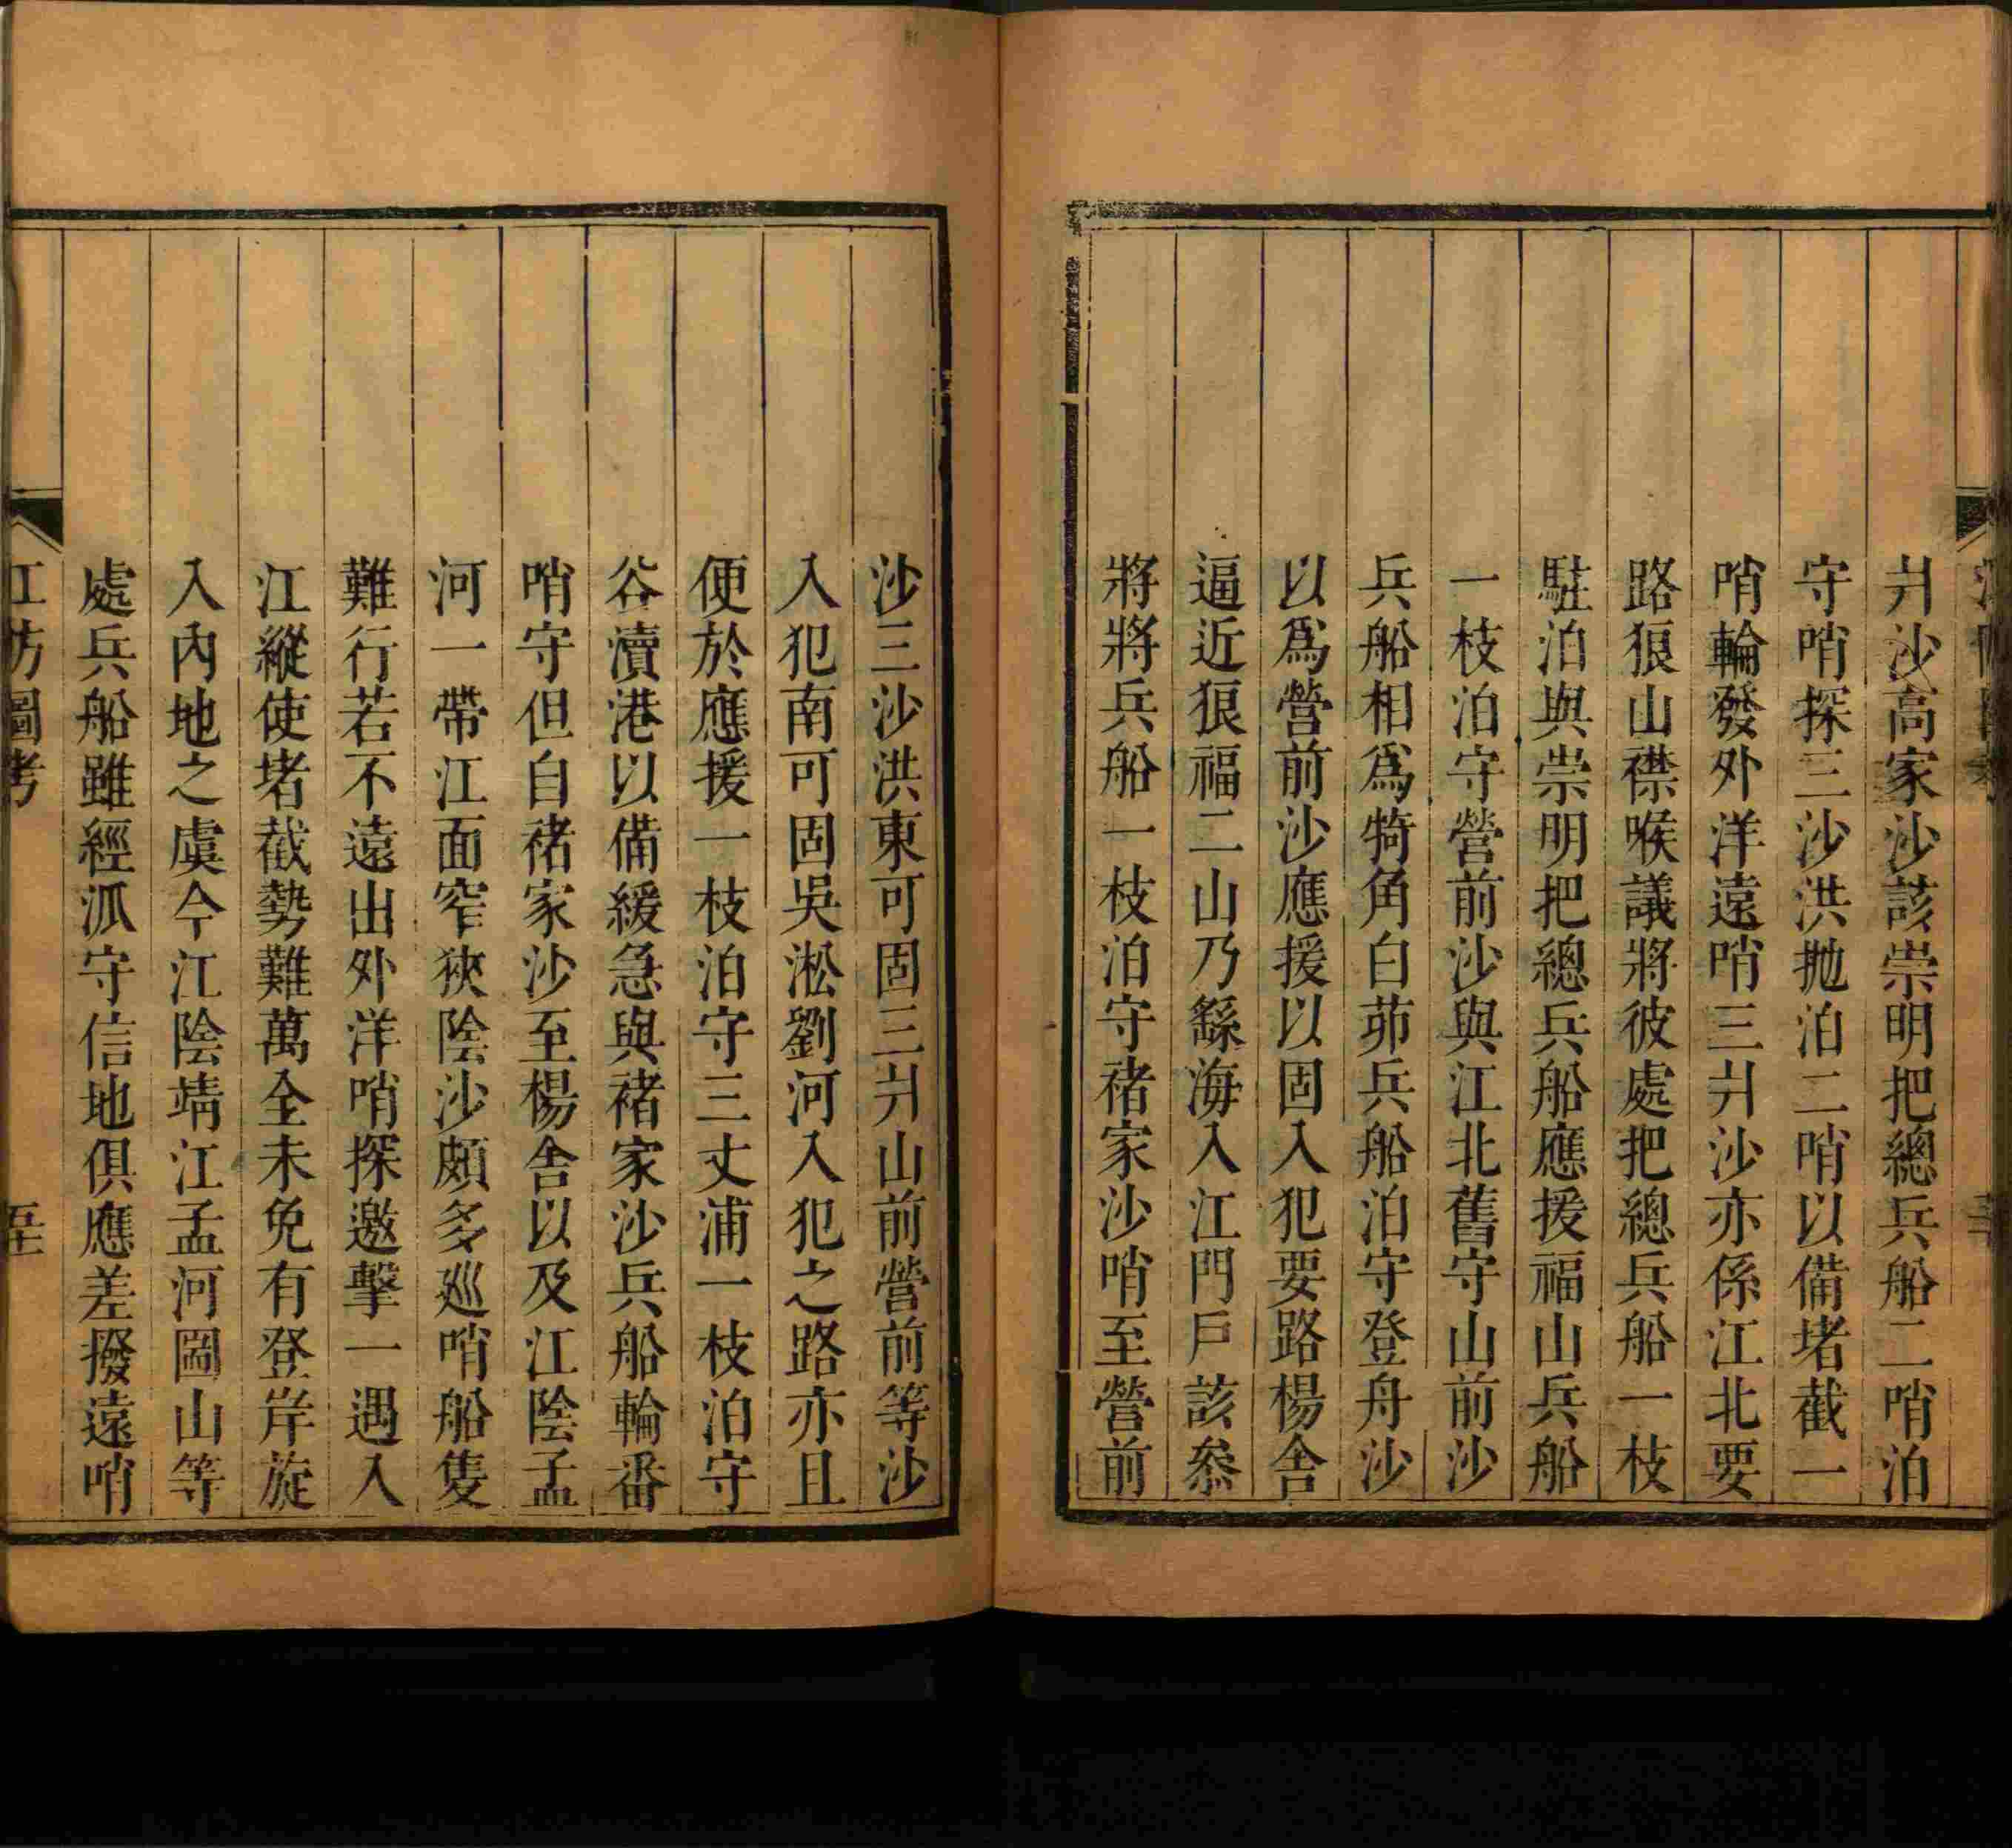 爿沙高家沙該崇明把總兵船二哨泊
守哨探三沙洪抛泊二哨以備堵截一
哨輪發外洋遠哨三爿沙亦係江北要
路狼山襟喉議將彼處把總兵船一枝
駐泊與崇明把總兵船應援福山兵船
一枝泊守營前沙與江北舊守山前沙
兵船相爲犄角白茆兵船泊守登舟沙
以爲營前沙應援以固入犯要路楊舍
逼近狼福二山乃繇海入江門戸該叅
將將兵船一枝泊守褚家沙哨至營前
沙三沙洪東可固三爿山前營前等沙
入犯南可固吳淞劉河入犯之路亦且
便於應援一枝泊守三丈浦一枝泊守
谷瀆港以備緩急與褚家沙兵船輪番
哨守但自褚家沙至楊舍以及江陰孟
河一帶江面窄狹陰沙頗多廵哨船隻
難行若不遠出外洋哨探邀擊一遇入
江縱使堵截勢難萬全未免有登岸旋
入內地之虞今江陰靖江孟河圌山等
處兵船雖經派守信地俱應差撥遠哨
江防圖考